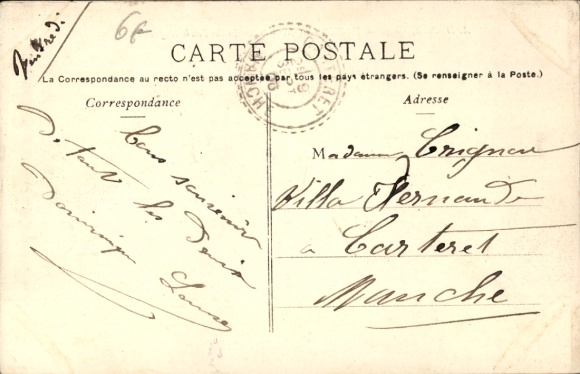 Vendredi
6f
CARTE POSTALE
La Correspondance au recto n'est pas acceptée par tous les pays étrangers. (Se renseigner à la Poste.)
Correspondance
Bons souvenirs
à tous les deux
Dominique
Louise
Adresse
Madame
Villa Fernande
a Carteret
Manche